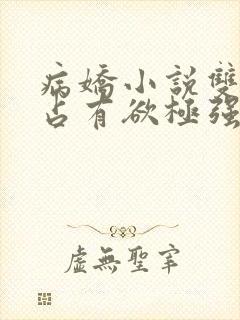 病嬌小説雙
占有欲極强
虛無聖宰